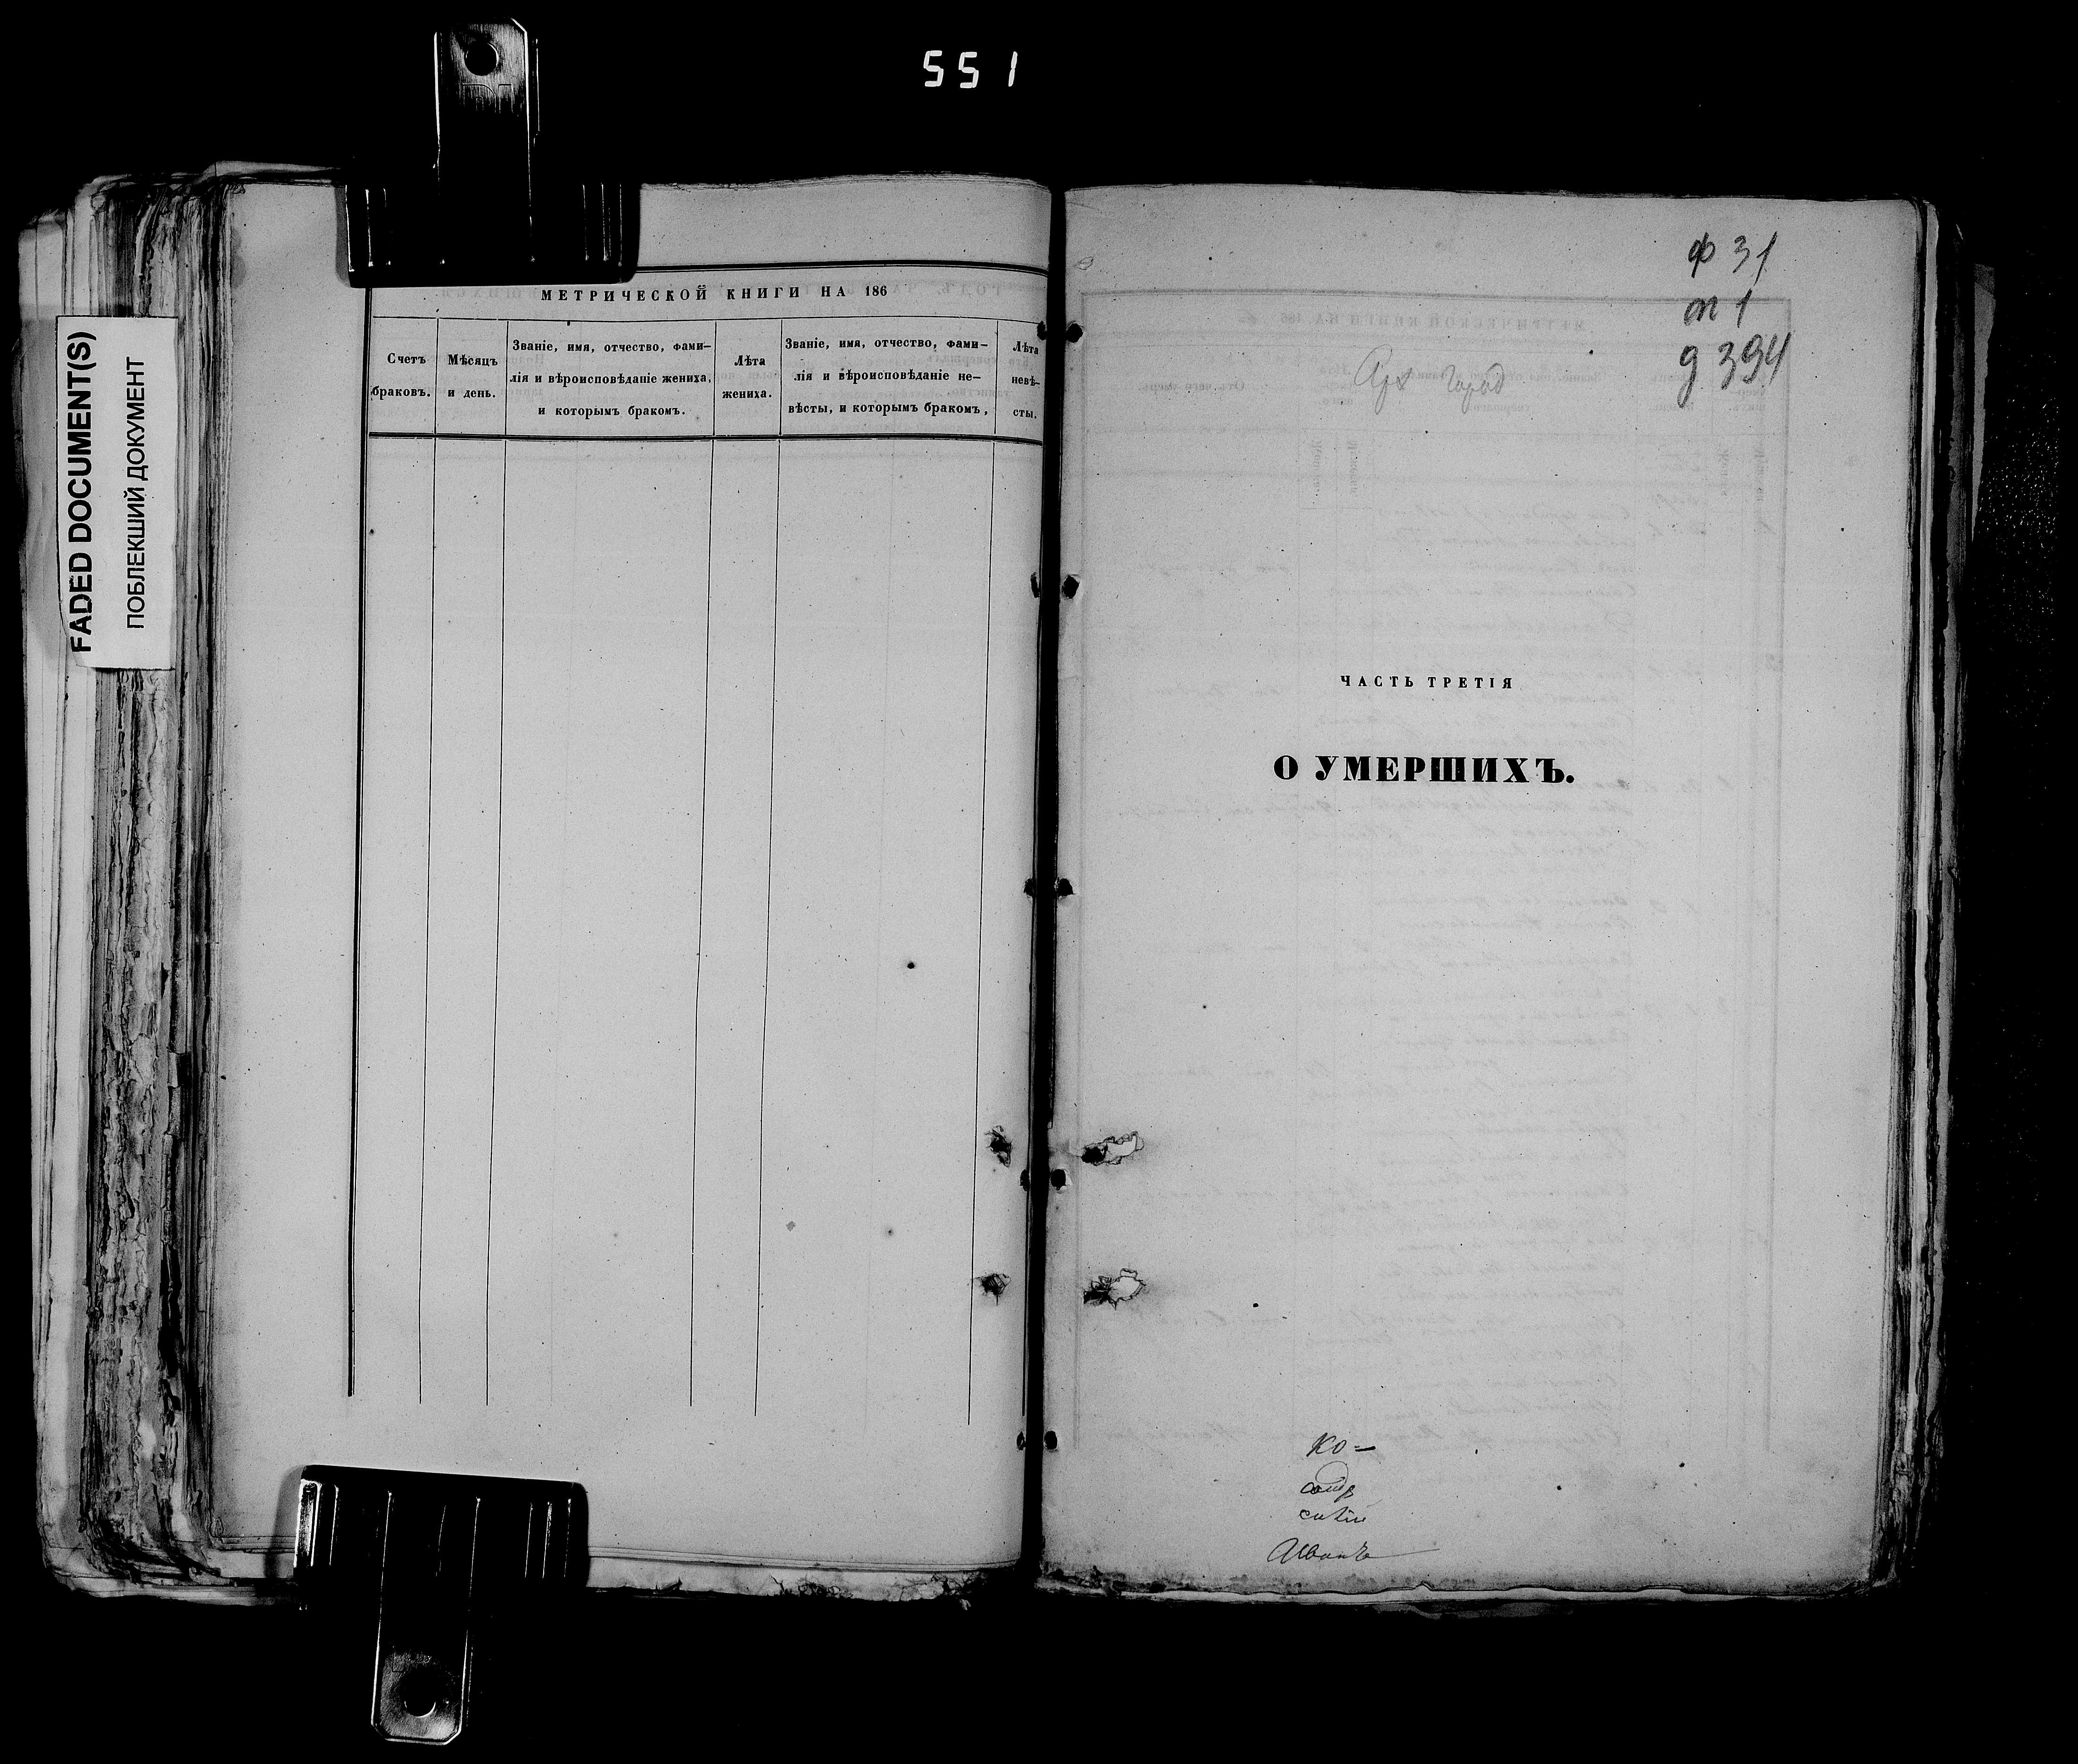 551
FADED DOCUMENT(S)
ПОБЛЕКШИЙ ДОКУМЕНТ
МЕТРИЧЕСКОЙ КНИГИ НА 186
Счетъ
браковъ.
Мѣсяцъ
и день.
Званіе, имя, отчество, фами–
лія и вѣроисповѣданіе жениха,
и которымъ бракомъ.
Лѣта
жениха.
Званіе, имя, отчество, фами–
лія и вѣроисповѣданіе не–
вѣсты, и которымъ бракомъ,
Лѣта
невѣ–
сты.
ф 31
т 1
д 394
Арх город
ЧАСТЬ ТРЕТІЯ
О УМЕРШИХЪ.
Ко=